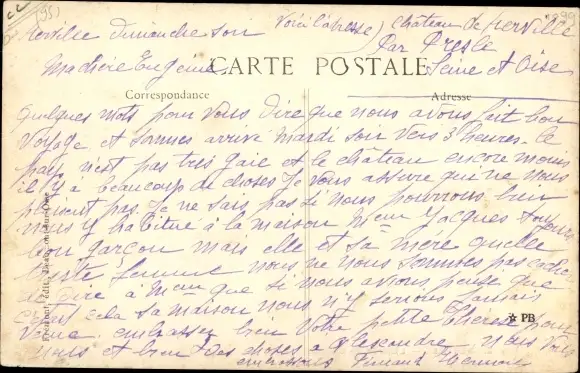 (95)
Nerville dimanche soir Voici l'adresse) Château de Nerville
Par Presle
Ma chère Eugénie CARTE POSTALE Seine et Oise
Correspondance Adresse
quelques mots pour vous dire que nous avons fait bon
voyage et sommes arrivé mardi soir vers 3 heures. le
pays n'est pas très gaie et le château encore moins
il y a beaucoup de choses je vous assure qui ne nous
plaisent pas je ne sais pas si nous pourrons bien
nous y habitué à la maison Mr Jacques toujours
bon garçon mais elle et sa mère quelle
femme nous ne nous sommes pas
dire à que si nous avions pensé que
cela sa maison nous n'y serions jamais
embrasser bien votre petite Thérèse pour
nous et bien des choses à Alexandre, nous vous
embrassons
PB